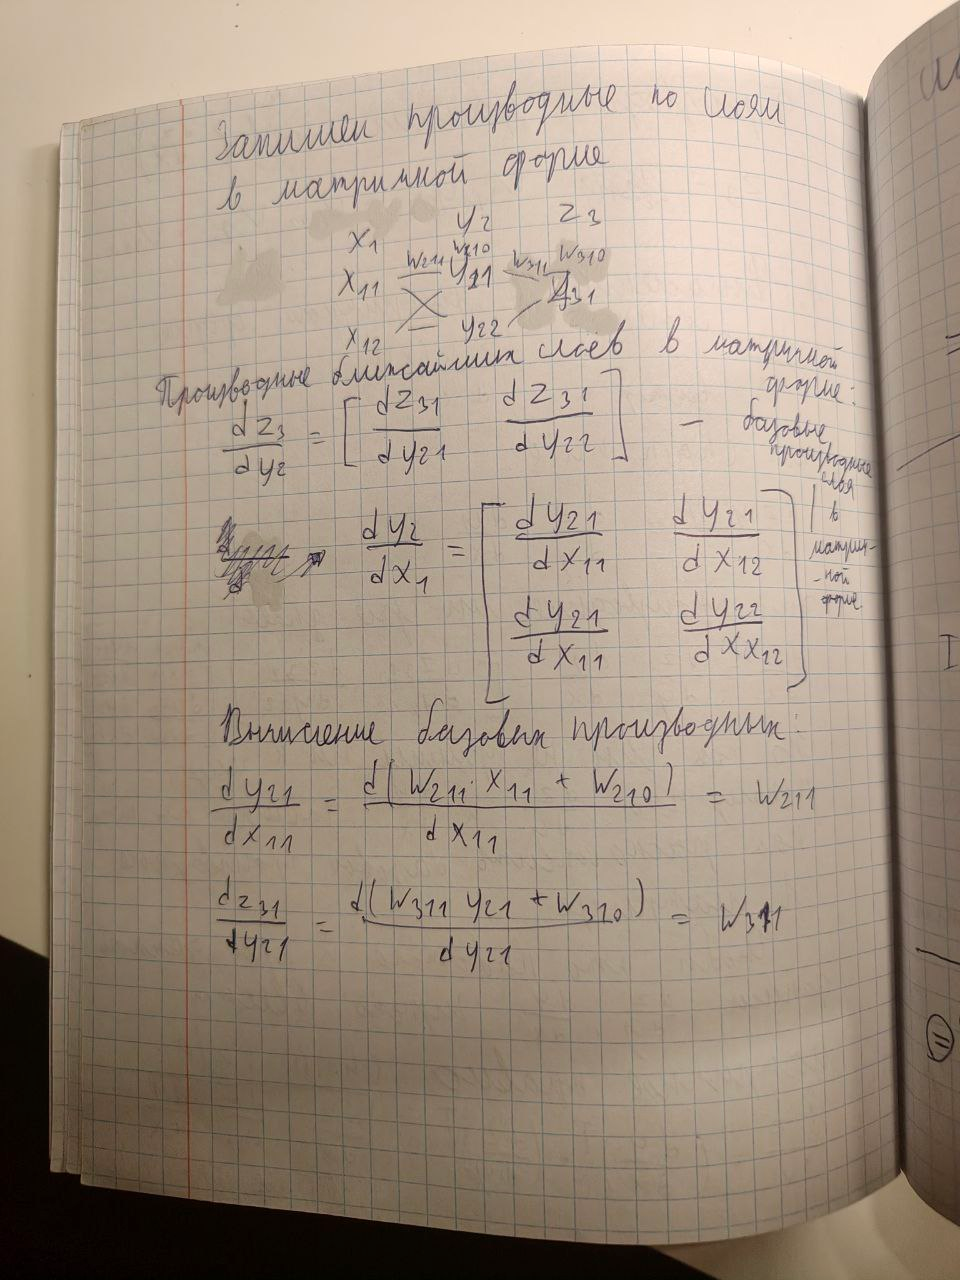 Запишем производные по слоям
в матричной форме
x1 y2 z3
x11 w211 w210 y21 w311 w310 z31
x12 y22
Производные ближайших слоев в матричной форме:
dz3/dy2 = [ dz31/dy21 dz31/dy22 ] — базовые производные слоя в матрич-ной форме.
dy2/dx1 = [ dy21/dx11 dy21/dx12
dy21/dx11 dy22/dxx12 ]
Вычисление базовых производных:
dy21/dx11 = d(w211·x11 + w210)/dx11 = w211
dz31/dy21 = d(w311 y21 + w310)/dy21 = w311
11